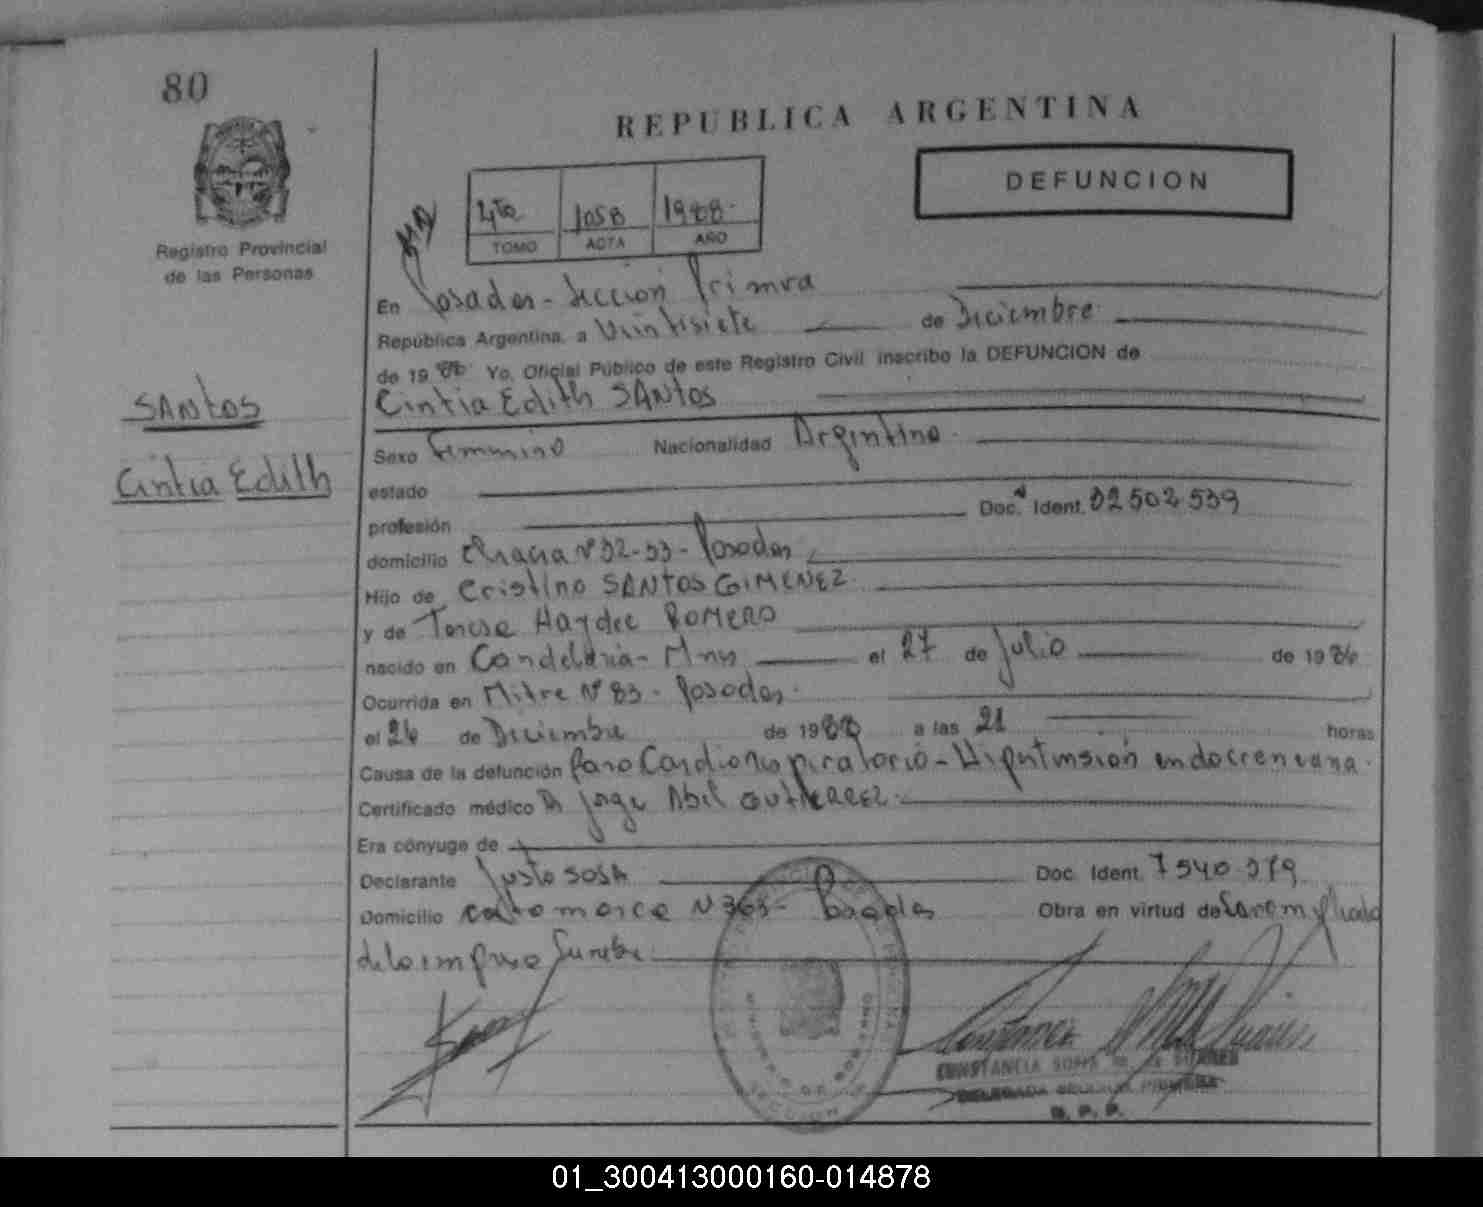 80
REPUBLICA ARGENTINA
DEFUNCION
4to 1058 1988
TOMO ACTA AÑO
Registro Provincial
de las Personas
En Posadas - Sección Primera
República Argentina, a Veintisiete de Diciembre
de 1988 Yo, Oficial Público de este Registro Civil inscribo la DEFUNCION de
SANTOS
Cintia Edith SANTOS
Cintia Edith
Sexo Femenino Nacionalidad Argentina
estado
profesión Doc. Ident. 32502539
domicilio Chacra Nº 32-33 - Posadas
Hijo de Cristino SANTOS GIMENEZ
y de Teresa Haydee ROMERO
nacido en Candelaria - Mnes el 27 de Julio de 1986
Ocurrida en Mitre Nº 83 - Posadas
el 26 de Diciembre de 1988 a las 21 horas
Causa de la defunción Paro Cardiorespiratorio - Hipertensión endocreneana
Certificado médico Dr Jorge Abel GUTIERREZ
Era cónyuge de
Declarante Justo SOSA Doc. Ident. 7540.279
Domicilio Catamarca Nº 363 - Posadas Obra en virtud de Ser empleado
de la empresa funebre
CONSTANCIA SOFIA
DELEGADA SECCION PRIMERA
R. P. P.
01_300413000160-014878